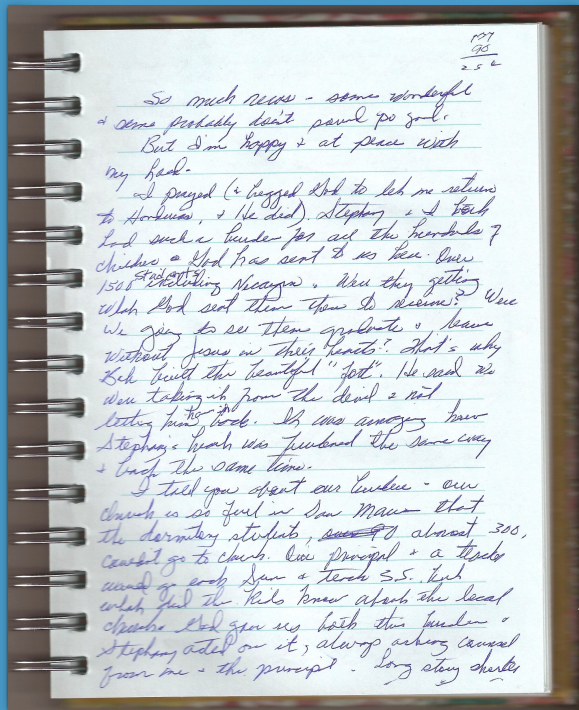 177
90
25
So much news - some wonderful
& some probably don't sound so good.
But I'm happy & at peace with
my
I prayed (& begged God to let me return
to Honduras, & He did). Stephany & I both
had such a burden for all the hundreds of
children God has sent to us here. Over
1500 students including Nicaragua. Were they getting
what God sent them there to receive? Were
we going to see them graduate & leave
without Jesus in their hearts? That's why
Bob built the beautiful "fort". He said we
were taking it from the devil & not
letting him have it back. It was amazing how
Stephany's heart was burdened the same way
& the same time.
I told you about our burden - our
church is so full in San Marcos that
the dormitory students, almost 300,
couldn't go to church. Our principal & a teacher
would go each Sun & teach S.S. but
what did the kids know about the local
church. God gave us both this burden &
Stephany acted on it, always asking counsel
from me & the principal. Long story shorter